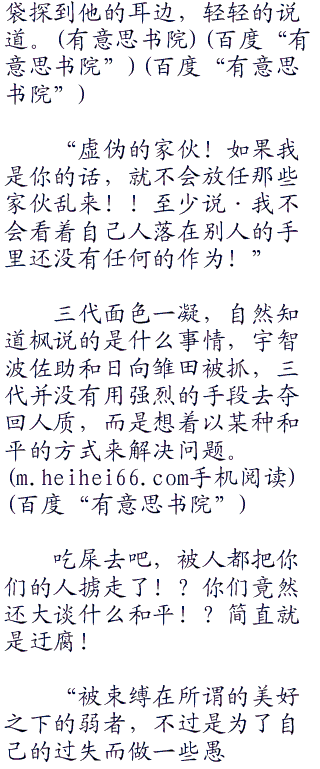 袋探到他的耳边，轻轻的说
道。(有意思书院)(百度“有
意思书院”)(百度“有意思
书院”)
“虚伪的家伙！如果我
是你的话，就不会放任那些
家伙乱来！！至少说·我不
会看着自己人落在别人的手
里还没有任何的作为！”
三代面色一凝，自然知
道枫说的是什么事情，宇智
波佐助和日向雏田被抓，三
代并没有用强烈的手段去夺
回人质，而是想着以某种和
平的方式来解决问题。
(m.heihei66.com手机阅读)
(百度“有意思书院”)
吃屎去吧，被人都把你
们的人掳走了！？你们竟然
还大谈什么和平！？简直就
是迂腐！
“被束缚在所谓的美好
之下的弱者，不过是为了自
己的过失而做一些愚